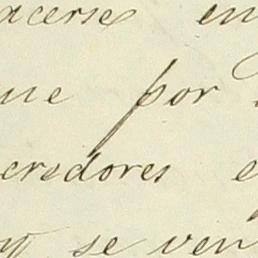 acerse en
ue por
credores e
se ven